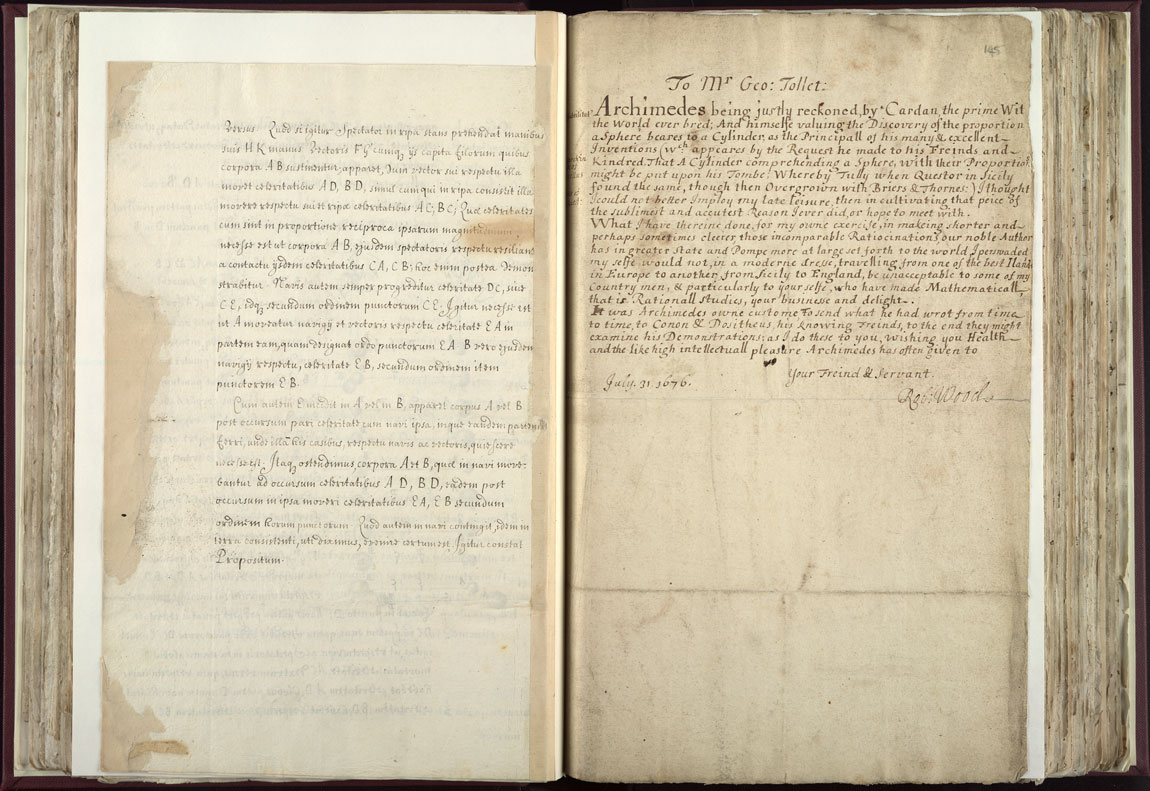 versus. Quod si igitur Spectator in ripa stans prehendat manibus
suis HK manus Vectoris FG cumq; ijs capita filorum quibus
corpora AB sustinentur, apparet, Dum vector sui respectu illa
movet celeritatibus AD, BD, simul eum qui in ripa consistit illa
movere respectu sui et ripæ celeritatibus AC, BC; Quæ celeritates
cum sint in proportione reciproca ipsarum magnitudinum
necesse est ut corpora AB, ejusdem spectatoris respectu resiliant
a contactu ijsdem celeritatibus CA, CB; hoc enim postea demon
strabitur. Navis autem semper progreditur celeritate DC, sive
CE, idq; secundum ordinem punctorum CE; Igitur necesse est
ut A moveatur navigij et vectoris respectu celeritate EA in
partem eam, quam designat ordo punctorum EA B vero ejusdem
navigij respectu, celeritate EB, secundum ordinem item
punctorem EB.
Cum autem E incidit in A vel in B, apparet corpus A vel B
post occursum pari celeritate cum navi ipsa, inque eandem partem
ferri, unde illa his casibus, respectu navis ac vectoris, quiescere
necesse est. Itaq; ostendimus corpora A et B, quæ in navi move-
bantur ad occursum celeritatibus AD, BD, eadem post
occursum in ipsa moveri celeritatibus EA, EB secundum
ordinem horum punctorum Quod autem in navi contingit, idem in
terra consistenti, uti diximus, evenire certum est. Igitur constat
Propositum.
145
To Mr Geo: Tollet:
Archimedes being justly reckoned, by Cardan, the prime Wit
the World ever bred; And himselfe valuing the Discovery of the proportion
a Sphere beares to a Cylinder, as the Principall of his many & excellent
Inventions (wch appeares by the Request he made to his Freinds and
Kindred, That A Cylinder comprehending a Sphere, with their Proportion
might be put upon his Tombe: Whereby Tully when Questor in Sicily
found the same, though then Overgrown with Briers & Thornes:) I thought
I could not better Imploy my late leisure, then in cultivating that peice of
the sublimest and accutest Reason I ever did, or hope to meet with.
What I have thereine done, for my owne exercise, in making shorter and
perhaps sometimes cleerer, those incomparable Ratiocinations, our noble Author
has in greater State and Pompe more at large set forth to the world I perswaded
my selfe would not, in a moderne dresse, travelling from one of the best Ilands
in Europe to another, from Sicily to England, be unacceptable to some of my
Country men, & particularly to your selfe, who have made Mathematicall,
that is Rationall studies, your businesse and delight.
It was Archimedes owne custome to send what he had wrot from time
to time, to Conon & Dositheus, his knowing Freinds, to the end they might
examine his Demonstrations; as I do these to you, wishing you Health
and the like high intellectuall pleasure Archimedes has often given to
Your Freind & Servant.
July. 31 1676.
Rob: Wood